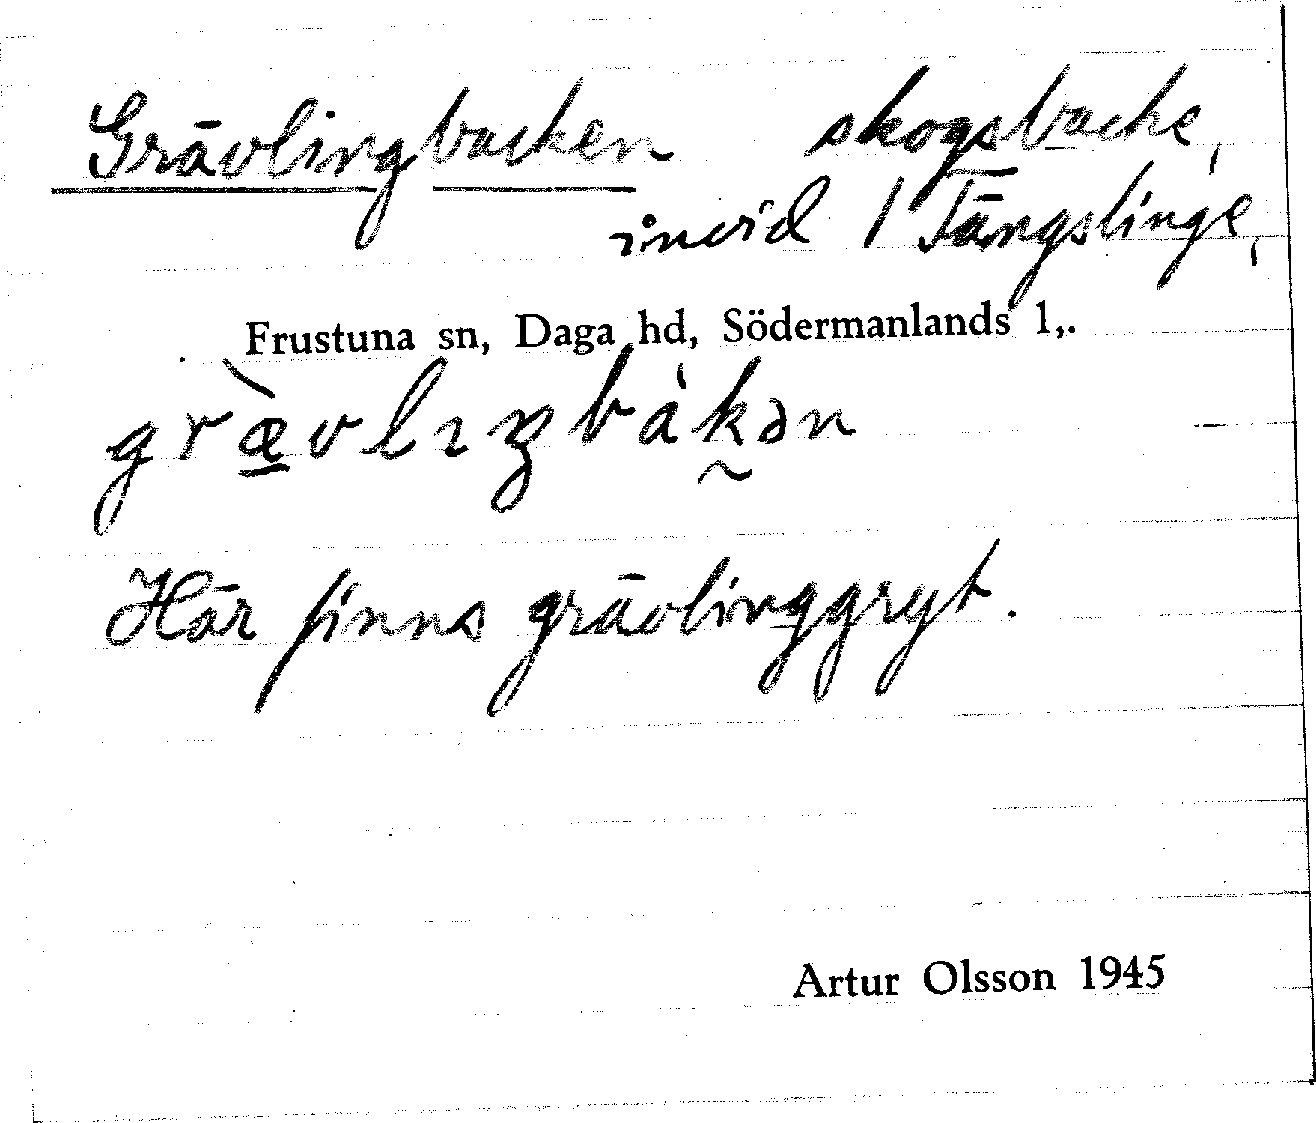 Grävlingbacken skogsbacke,
invid 1 Tängslinge,
Frustuna sn, Daga hd, Södermanlands l,.
græ̀vlıŋbákən
Här finns grävlinggryt.
Artur Olsson 1945